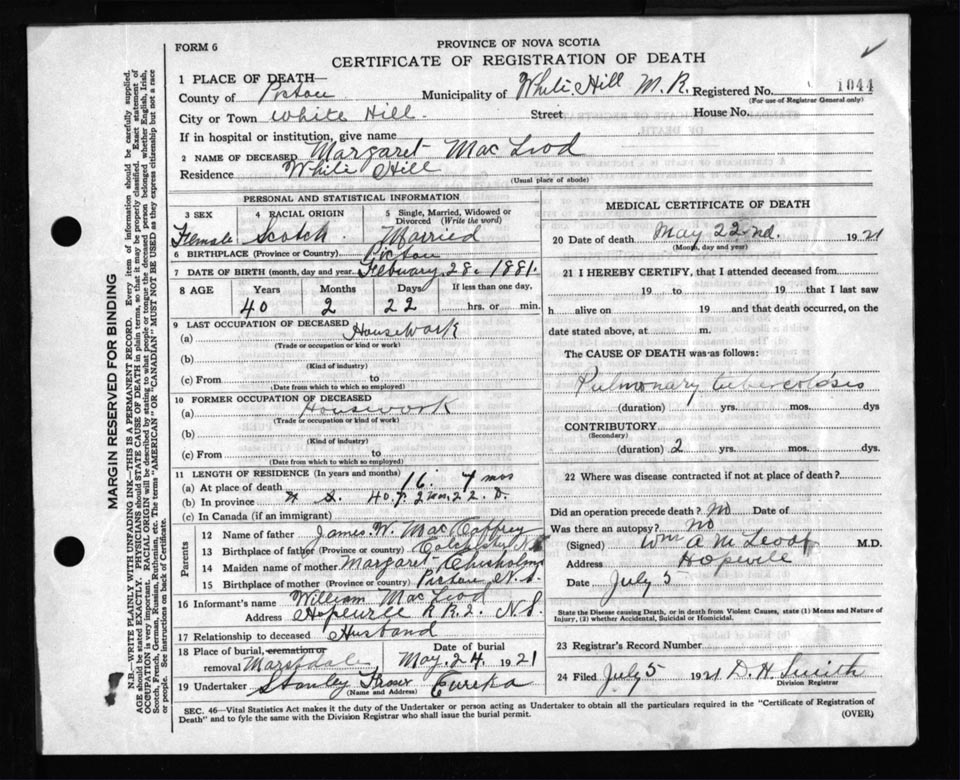 FORM 6
PROVINCE OF NOVA SCOTIA
CERTIFICATE OF REGISTRATION OF DEATH
1 PLACE OF DEATH—
County of Pictou Municipality of White Hill M. R. Registered No. 1044
(For use of Registrar General only)
City or Town White Hill. Street House No.
If in hospital or institution, give name
2 NAME OF DECEASED Margaret Mac Leod
Residence White Hill
(Usual place of abode)
PERSONAL AND STATISTICAL INFORMATION
3 SEX 4 RACIAL ORIGIN 5 Single, Married, Widowed or Divorced (Write the word)
Female Scotch. Married
6 BIRTHPLACE (Province or Country) Pictou
7 DATE OF BIRTH (month, day and year. February. 28. 1881.
8 AGE Years Months Days If less than one day,
40 2 22 hrs. or min.
9 LAST OCCUPATION OF DECEASED
(a) Housework
(Trade or occupation or kind or work)
(b)
(Kind of industry)
(c) From to
(Date from which to which so employed)
10 FORMER OCCUPATION OF DECEASED
(a) Housework
(Trade or occupation or kind or work)
(b)
(Kind of industry)
(c) From to
(Date from which to which so employed)
11 LENGTH OF RESIDENCE (In years and months)
(a) At place of death 16. 7 mos
(b) In province N S. 40. 2 22. D.
(c) In Canada (if an immigrant)
Parents
12 Name of father James. W. Mac Caffrey
13 Birthplace of father (Province or country) Colchester N S
14 Maiden name of mother Margaret Chisholm
15 Birthplace of mother (Province or country) Pictou N. S.
16 Informant's name William Mac Leod
Address Hopewell R R 2. N S.
17 Relationship to deceased Husband
18 Place of burial, cremation or removal Marshdale Date of burial May. 24. 1921
19 Undertaker Stanley Fraser Eureka
(Name and Address)
MEDICAL CERTIFICATE OF DEATH
20 Date of death May 22nd. 1921
(Month, day and year)
21 I HEREBY CERTIFY, that I attended deceased from
19 to 19 that I last saw
h alive on 19 and that death occurred, on the
date stated above, at m.
The CAUSE OF DEATH was as follows:
Pulmonary tuberculosis
(duration) yrs. mos. dys
CONTRIBUTORY
(Secondary)
(duration) 2 yrs. mos. dys
22 Where was disease contracted if not at place of death?
Did an operation precede death? No Date of
Was there an autopsy? No
(Signed) Wm A M Leod M.D.
Address Hopewell
Date July 5
State the Disease causing Death, or in death from Violent Causes, state (1) Means and Nature of Injury, (2) whether Accidental, Suicidal or Homicidal.
23 Registrar's Record Number
24 Filed July 5 1921 D. H. Smith
Division Registrar
SEC. 46—Vital Statistics Act makes it the duty of the Undertaker or person acting as Undertaker to obtain all the particulars required in the "Certificate of Registration of
Death" and to fyle the same with the Division Registrar who shall issue the burial permit.
(OVER)
MARGIN RESERVED FOR BINDING
N.B.—WRITE PLAINLY WITH UNFADING INK—THIS IS A PERMANENT RECORD. Every item of information should be carefully supplied.
AGE should be stated EXACTLY. PHYSICIANS should STATE CAUSE OF DEATH in plain terms, so that it may be properly classified. Exact statement of
OCCUPATION is very important. RACIAL ORIGIN will be described by stating to what people or tongue the deceased person belonged whether English, Irish,
Scotch, French, German, Russian, Ruthenian, etc. The terms "AMERICAN" OR "CANADIAN" MUST NOT BE USED as they express citizenship but not a race
or people. See instructions on back of Certificate.